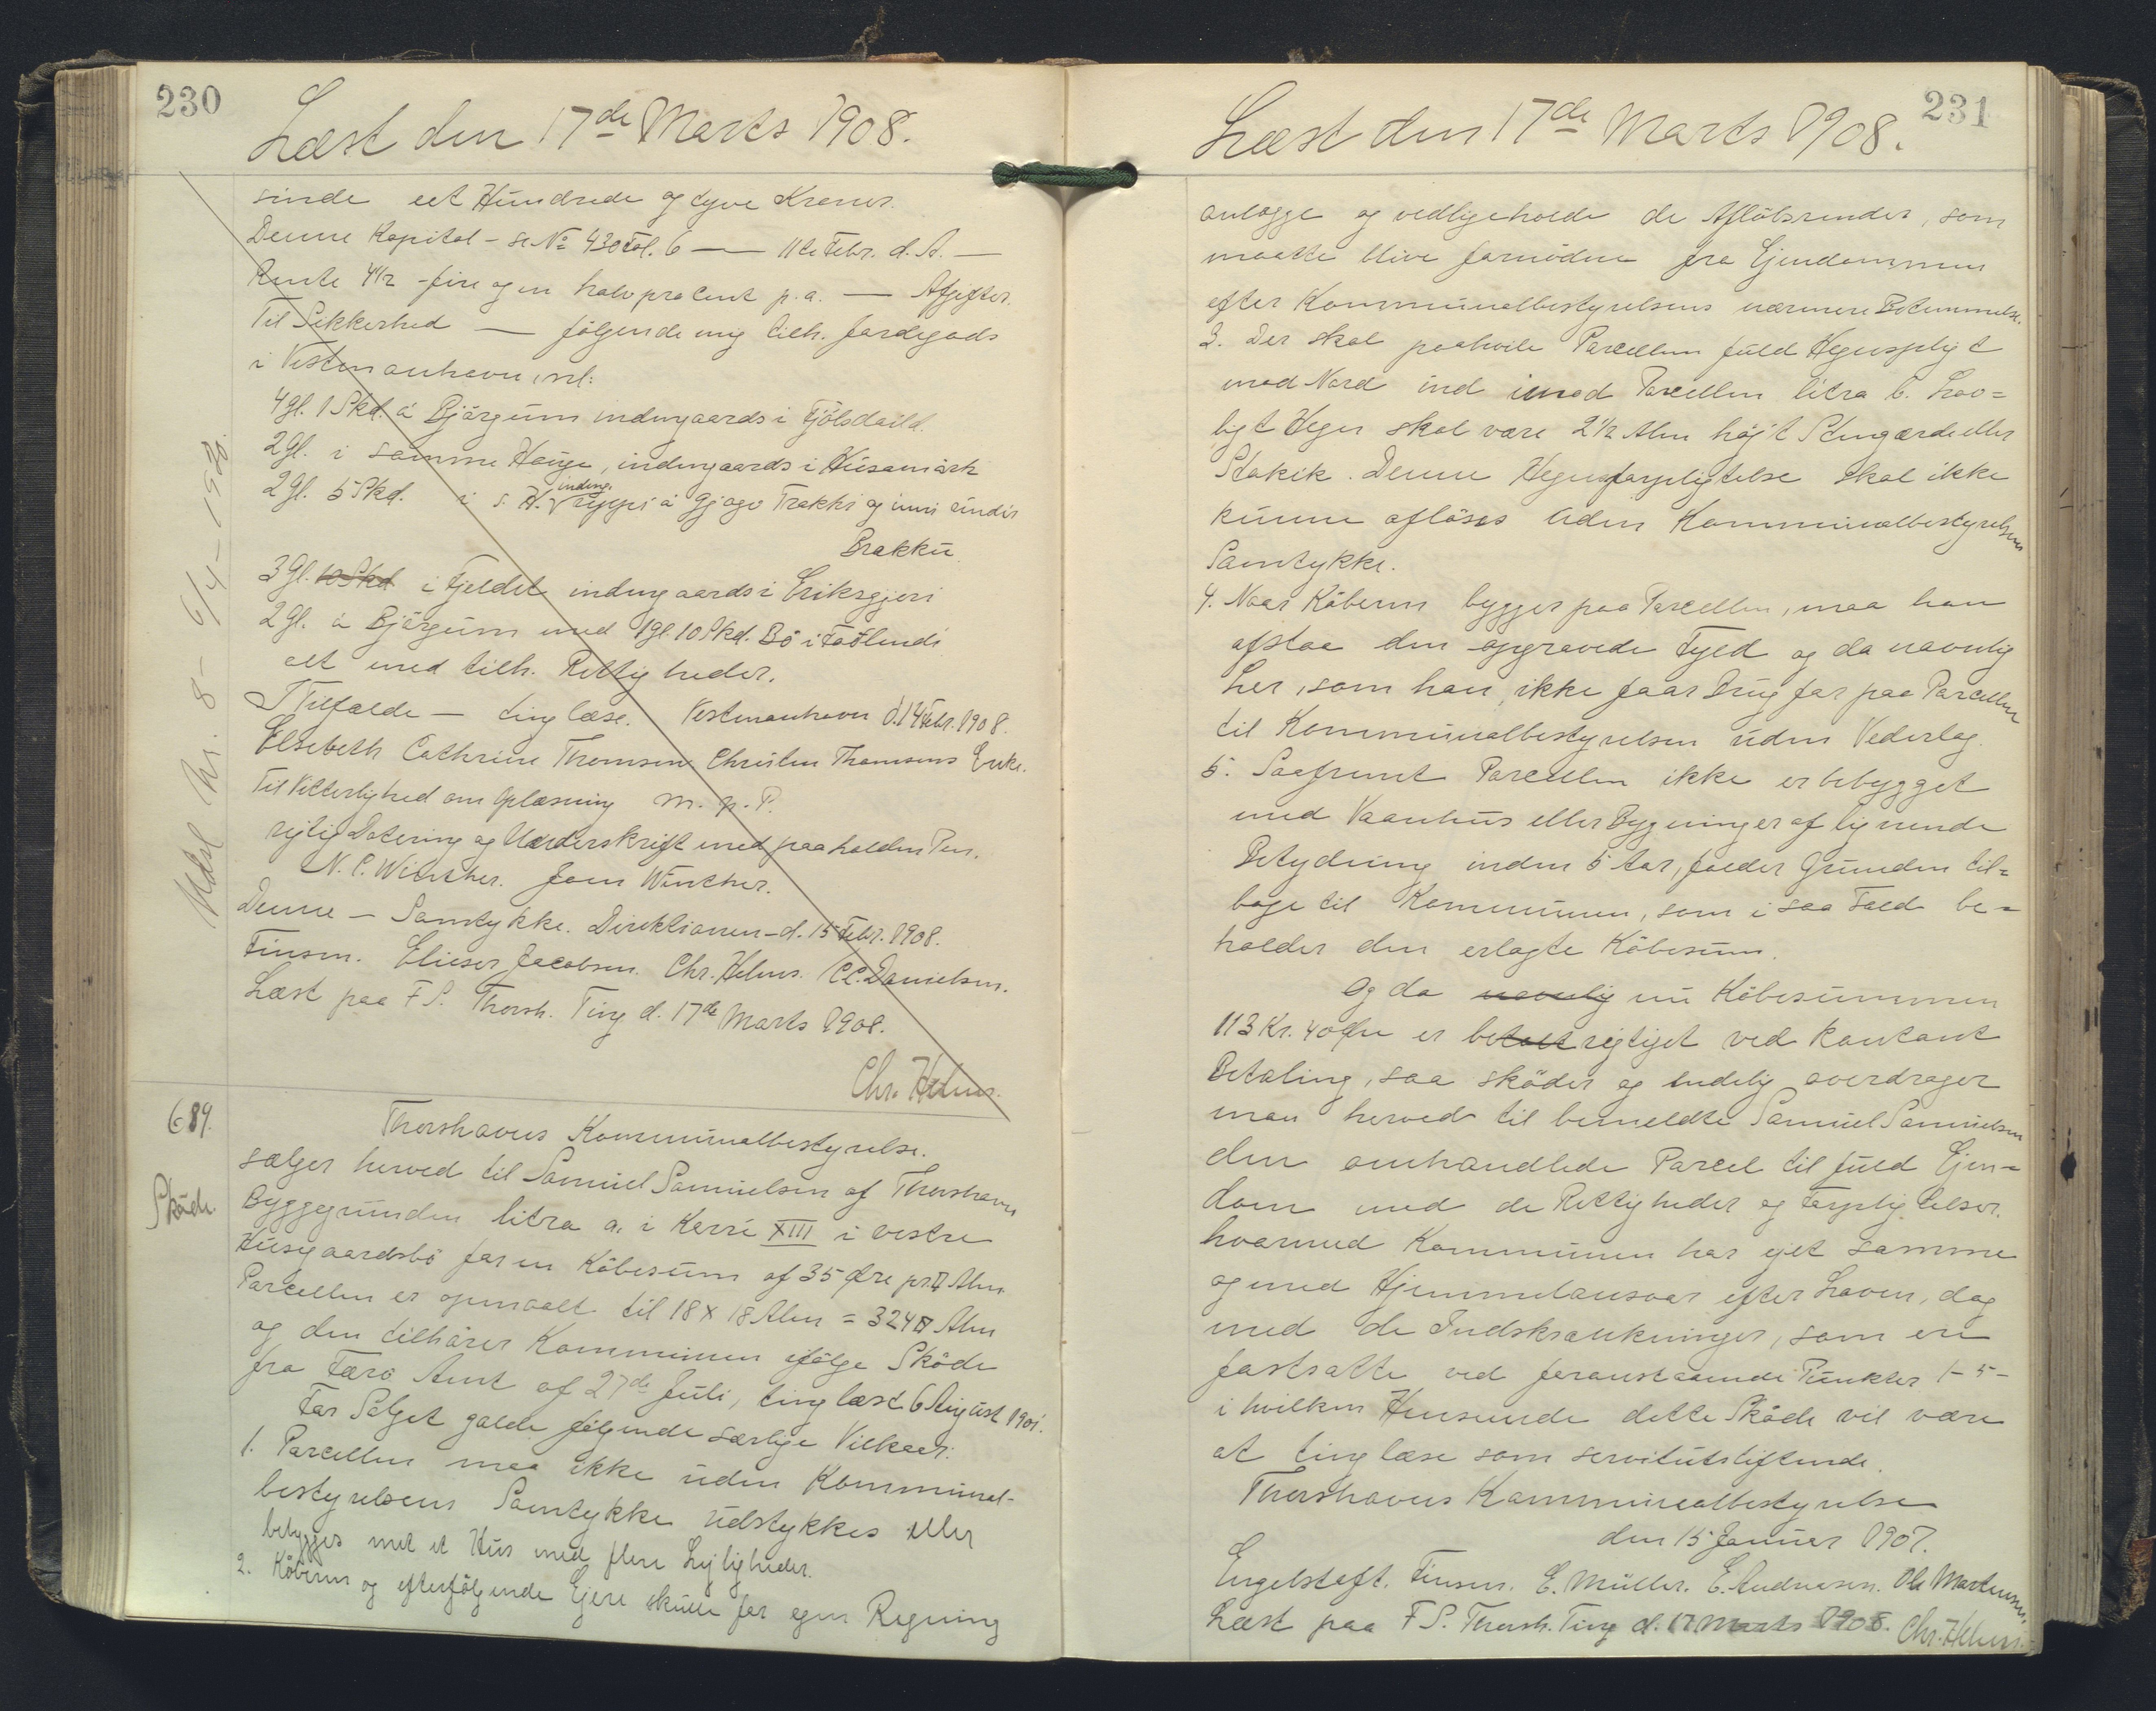 230
Læst den 17de Marts 1908.
sinde eet Hundrede og tyve Kroner.
Denne Kapital - se No 430 Fol. 6 — 11te Febr. d. A. —
Rente 4 1/2 - fire og en halv procent p.a. — Afgifter.
Til Sikkerhed — følgende mig tilh. Jordegods
i Vestmanhavn, nl:
4 gl. 1 Skd. á Bjørgum indengaards i Fjølsdaild.
2 gl. i samme Hauge, indengaards i Húsamørk
indeng.
2 gl. 5 Skd. i s. H. uppi á Gjogv Trakki og inni undir
Brekku
3 gl. 10 Skd i Fjeldet indengaards i Eriksgjeri
2 gl. á Bjørgum med 1 gl. 10 Skd. Bø i
alt med tilh. Rettigheder.
I Tilfælde — tinglæse. Vestmanhavn d. 14 Febr. 1908.
Elsebeth Cathrine Thomsen Christen Thomsens Enke.
Til Vitterlighed om Oplæsning m. p. P.
rigtig Datering og Underskrift med paaholden Pen.
N. P. Winther. Joen Winther.
Denne — Samtykke. Direktionen - d. 15 Febr. 1908.
Finsen. Elieser Jacobsen. Chr. Helms. C.C. Danielsen.
Læst paa F. S. Thorsh. Ting d. 17de Marts 1908.
Chr. Helms.
Udsl. Nr. 8 - 6/4 -
689.
Skøde.
Thorshavns Kommunalbestyrelse.
sælger herved til Samuel Samuelsen af Thorshavn
Byggegrunden litra a. i Kerri XIII i vestre
Husgaardsbø for en Købesum af 35 Øre pr. □ Alen
Parcellen er opmaalt til 18 x 18 Alen = 324 □ Alen
og den tilhører Kommunen ifølge Skøde
fra Færø Amt af 27de Juli, tinglæst 6 August 1901.
For Salget gælde følgende særlige Vilkaar:
1. Parcellen maa ikke uden Kommunal-
bestyrelsens Samtykke udstykkes eller
bebygges med et Hus med flere Lejligheder.
2. Køberen og efterfølgende Ejere skulle for egen Regning
231
Læst den 17de Marts 1908.
anlægge og vedligeholde de Afløbsrender, som
maatte blive fornødne fra Ejendommen
efter Kommunalbestyrelsens nærmere Bestemmelse.
3. Der skal paahvile Parcellen fuld Hegnspligt
mod Nord ind imod Parcellen litra b. Lov=
ligt Hegn skal være 2 1/2 Alen højt Stengærde eller
Stakit. Denne Hegnsforpligtelse skal ikke
kunne afløses uden Kommunalbestyrelsens
Samtykke.
4. Naar Køberen bygger paa Parcellen, maa han
afstaa den opgravede Fyld og da navnlig
Ler, som han ikke faar Brug for paa Parcellen
til Kommunalbestyrelsen uden Vederlag.
5. Saafremt Parcellen ikke er bebygget
med Vaanhus eller Bygninger af lignende
Betydning inden 5 Aar, falder Grunden til=
bage til Kommunen, som i saa Fald be=
holder den erlagte Købesum.
Og da navnlig nu Købesummen
113 Kr. 40 Øre er betalt rigtiget ved kontant
Betaling, saa skøder og endelig overdrager
man herved til bemeldte Samuel Samuelsen
den omhandlede Parcel til fuld Ejen=
dom med de Rettigheder og Forpligtelser.
hvormed Kommunen har ejet samme
og med Hjemmelansvar efter Loven, dog
med de Indskrænkninger, som ere
fastsatte ved foranstaaende Punkter 1-5-
i hvilken Henseende dette Skøde vil være
at tinglæse som servitutstiftende.
Thorshavns Kommunalbestyrelse
den 15 Januar 1907.
Engelstoft. Finsen. E. Müller. E. Andreasen. Ole Mortensen.
Læst paa F. S. Thorsh. Ting d. 17 Marts 1908. Chr. Helms.